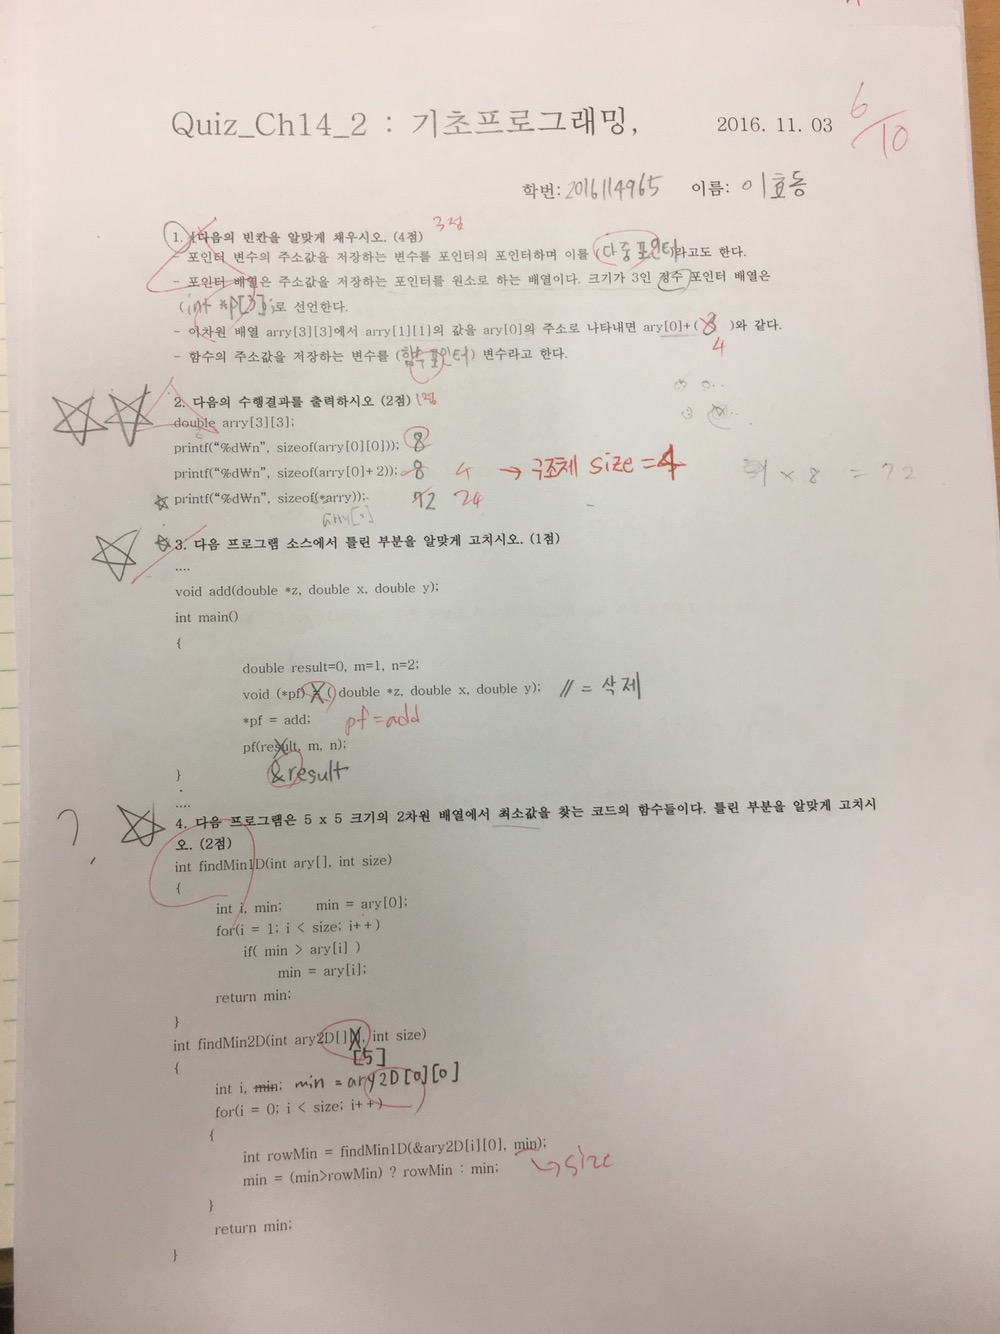 Quiz_Ch14_2 : 기초프로그래밍, 2016. 11. 03 6/10
학번: 2016114965 이름: 이효동
3점
1. 다음의 빈칸을 알맞게 채우시오. (4점)
- 포인터 변수의 주소값을 저장하는 변수를 포인터의 포인터하며 이를 (다중포인터)라고도 한다.
- 포인터 배열은 주소값을 저장하는 포인터를 원소로 하는 배열이다. 크기가 3인 정수 포인터 배열은
(int *p[3];)로 선언한다.
- 이차원 배열 arry[3][3]에서 arry[1][1]의 값을 ary[0]의 주소로 나타내면 ary[0]+( 3 )와 같다.
4
- 함수의 주소값을 저장하는 변수를 (함수포인터) 변수라고 한다.
2. 다음의 수행결과를 출력하시오 (2점) 1점
double arry[3][3];
printf("%d₩n", sizeof(arry[0][0])); 8
printf("%d₩n", sizeof(arry[0]+2)); 8 4 → 구조체 size = 4 9 × 8 = 72
printf("%d₩n", sizeof(*arry)); 72 24
arry[0]
3. 다음 프로그램 소스에서 틀린 부분을 알맞게 고치시오. (1점)
....
void add(double *z, double x, double y);
int main()
{
double result=0, m=1, n=2;
void (*pf) = ( double *z, double x, double y); // = 삭제
*pf = add; pf = add
pf(result, m, n);
&result
}
....
? 4. 다음 프로그램은 5 x 5 크기의 2차원 배열에서 최소값을 찾는 코드의 함수들이다. 틀린 부분을 알맞게 고치시
오. (2점)
int findMin1D(int ary[], int size)
{
int i, min; min = ary[0];
for(i = 1; i < size; i++)
if( min > ary[i] )
min = ary[i];
return min;
}
int findMin2D(int ary2D[][], int size)
[5]
{
int i, min; min = ary2D[0][0]
for(i = 0; i < size; i++)
{
int rowMin = findMin1D(&ary2D[i][0], min);
↳ size
min = (min>rowMin) ? rowMin : min;
}
return min;
}